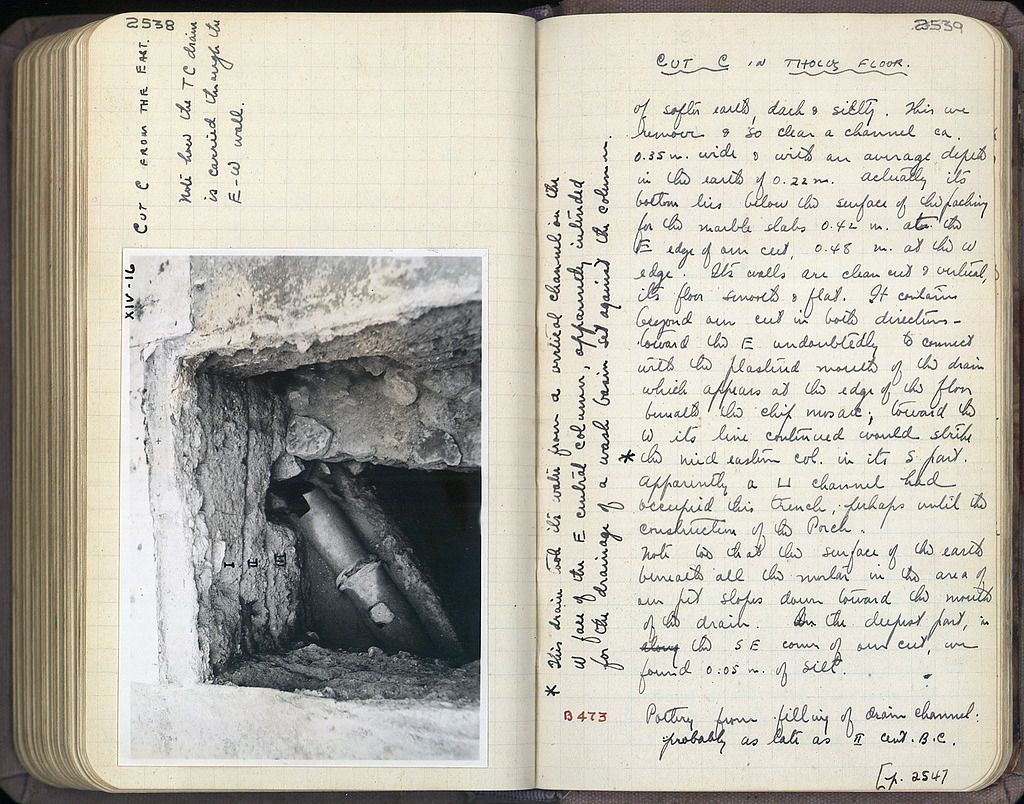 2538
CUT C FROM THE EAST.
Note how the TC drain
is carried through the
E-W wall.
XIV-16
I II III
2539
CUT C IN THOLUS FLOOR.
of softer earth, dark & silty. This we
remove & so clear a channel ca.
0.35 m. wide & with an average depth
in the earth of 0.22 m. Actually its
bottom lies below the surface of the packing
for the marble slabs 0.42 m. at the
E edge of our cut, 0.48 m. at the W
edge. Its walls are clean cut & vertical,
its floor smooth & flat. It contains
beyond our cut in both directions –
toward the E undoubtedly to connect
with the plastered mouth of the drain
which appears at the edge of the floor
beneath the chip mosaic; toward the
W its line continued would strike
* the mid eastern col. in its S part.
Apparently a ⊔ channel had
occupied this trench, perhaps until the
construction of the Porch.
Note too that the surface of the earth
beneath all the mortar in the area of
our pit slopes down toward the mouth
of the drain. In the deepest part, in
along the SE corner of our cut, we
found 0.05 m. of silt.
B 473
Pottery from filling of drain channel:
probably as late as II cent. B.C.
[p. 2547
* This drain took its water from a vertical channel on the
W face of the E central column, apparently intended
for the drainage of a wash basin set against the column.